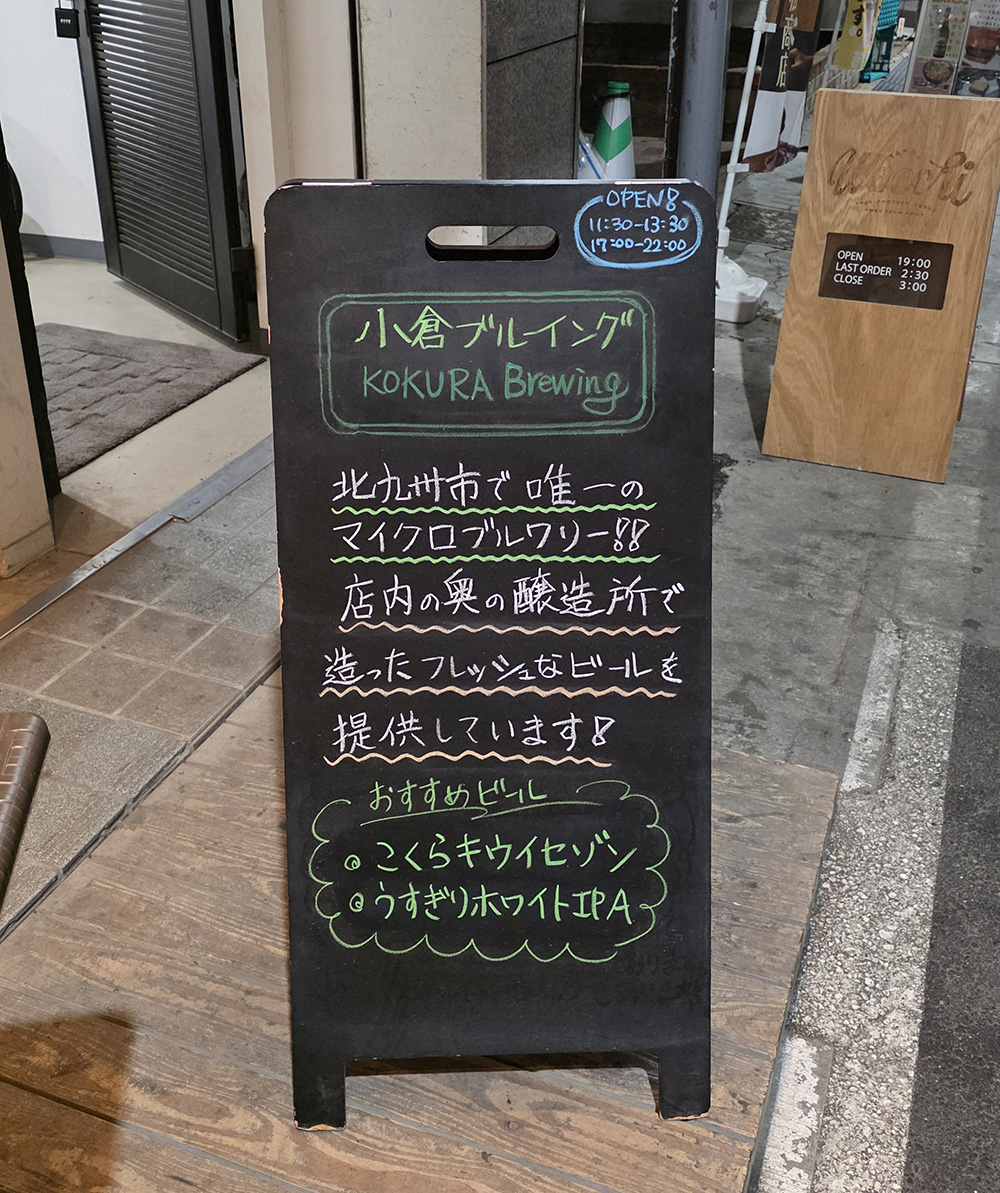 OPEN!
11:30-13:30
17:00-22:00
小倉ブルーイング
KOKURA Brewing
北九州市で唯一の
マイクロブルワリー!!
店内の奥の醸造所で
造ったフレッシュなビールを
提供しています!
おすすめビール
こくらキウイセゾン
うすぎりホワイトIPA
OPEN 19:00
LAST ORDER 2:30
CLOSE 3:00